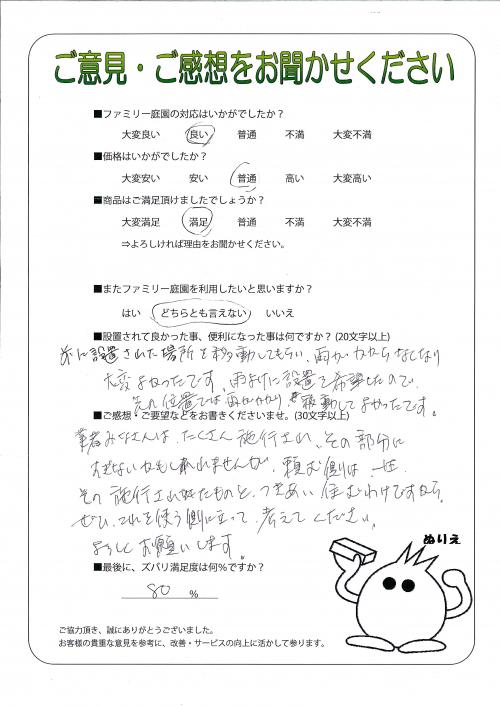 ご意見・ご感想をお聞かせください
■ファミリー庭園の対応はいかがでしたか？
大変良い 良い 普通 不満 大変不満
■価格はいかがでしたか？
大変安い 安い 普通 高い 大変高い
■商品はご満足頂けましたでしょうか？
大変満足 満足 普通 不満 大変不満
⇒よろしければ理由をお聞かせください。
■またファミリー庭園を利用したいと思いますか？
はい どちらとも言えない いいえ
■設置されて良かった事、便利になった事は何ですか？(20文字以上)
に設置された場所を移動してもらい、雨がかからなくなり
大変よかったです。雨よけに設置を希望したので、
位置では雨がかかり、移動してよかったです。
■ご感想・ご要望などをお書きくださいませ。(30文字以上)
業者みなさんは、たくさん施行され、その部分に
すぎないかもしれませんが、頼む側は、一生
その施行されたものと、つきあい住むわけですから、
ぜひ、これを使う側に立って、考えてください。
よろしくお願いします。
■最後に、ズバリ満足度は何%ですか？
80 %
ぬりえ
ご協力頂き、誠にありがとうございました。
お客様の貴重な意見を参考に、改善・サービスの向上に活かして参ります。